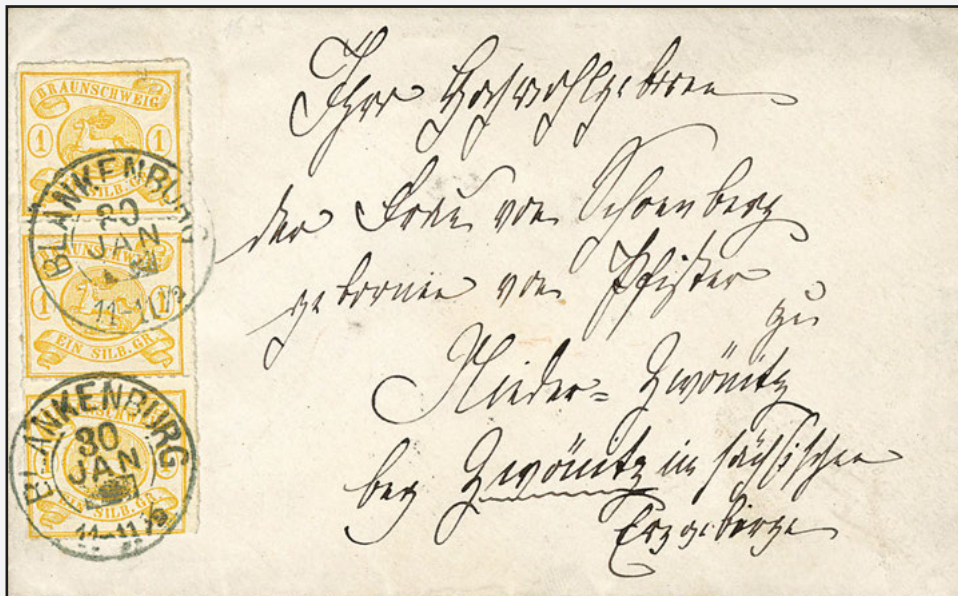 BRAUNSCHWEIG
1 1
SILB. GR
BLANKENBURG
30
JAN
11-11½
BRAUNSCHWEIG
1 1
EIN SILB. GR
BLANKENBURG
30
JAN
11-11½
Ihro Hochwohlgeboren
der Frau von Schoenberg
geborne von Pfister
zu
Nieder= Zwönitz
bey Zwönitz im sächsischen
Erzgebirge